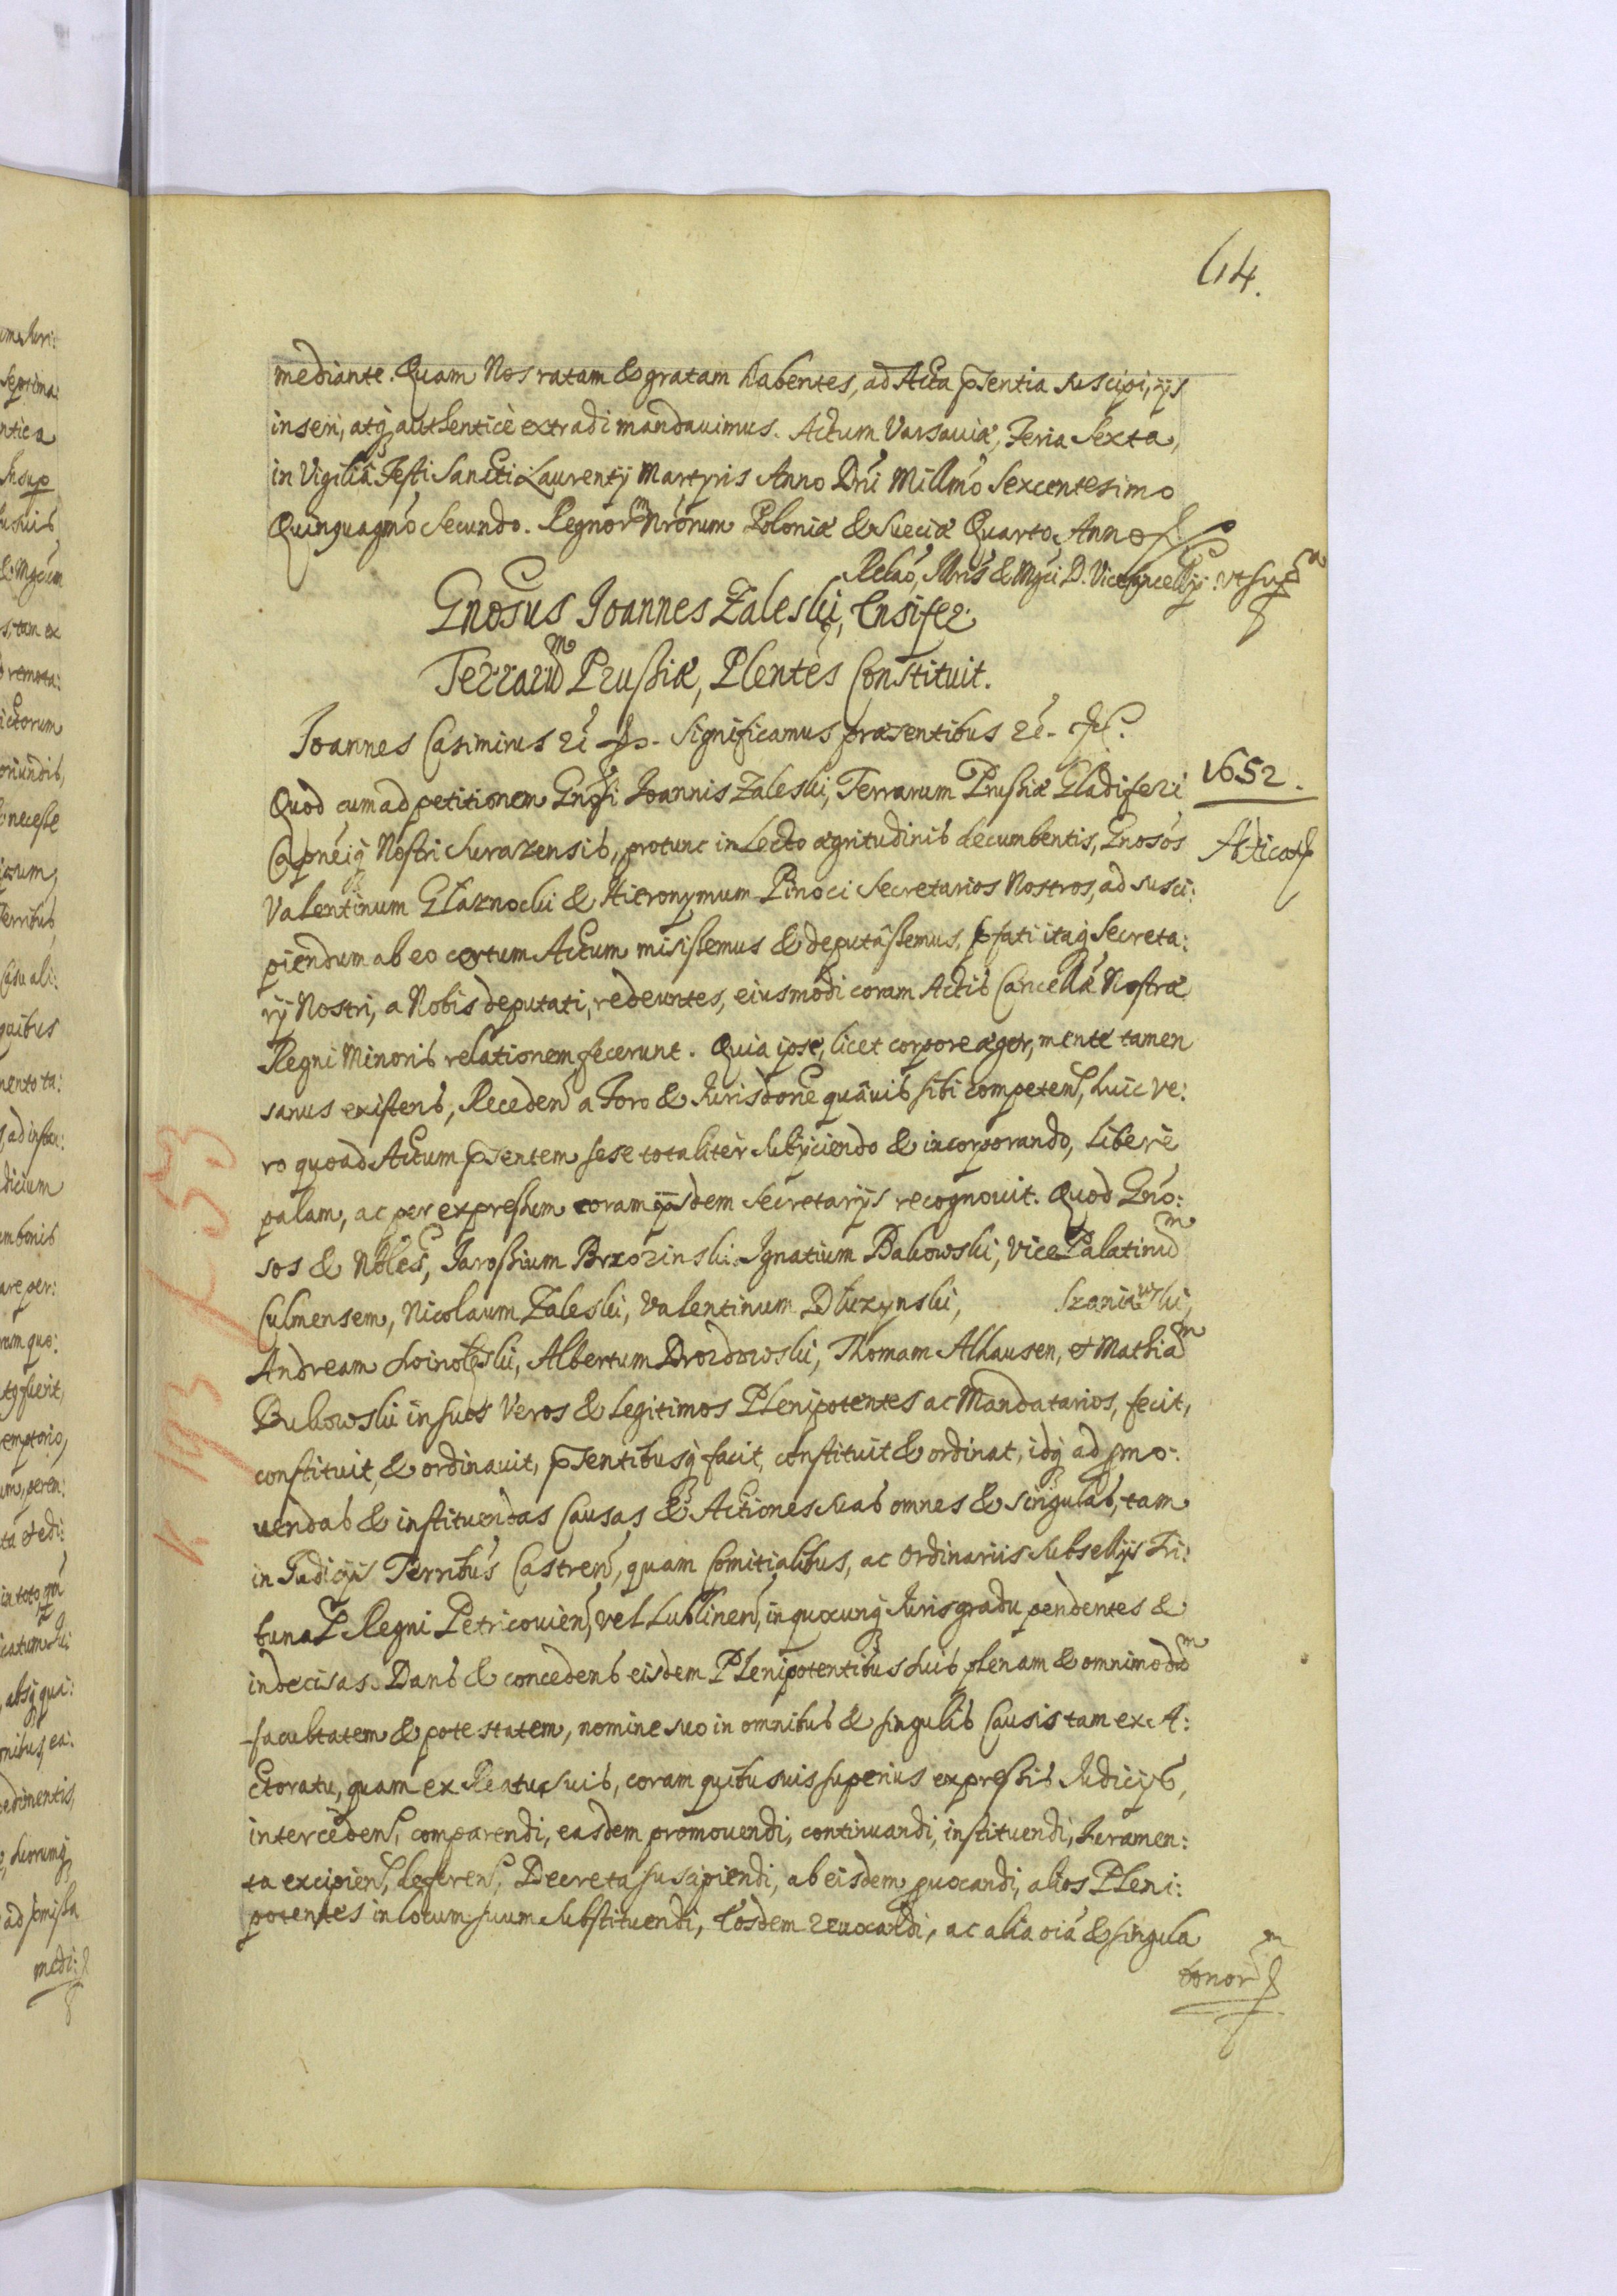 64.
mediante. Quam Nos ratam & gratam habentes, ad Acta pñtentia suscipi, ijs
inseri, atq; authenticè extradi mandauimus. Actum Varsauiæ, Feria Sexta,
in Vigiliâ Festi Sancti Laurentij Martyris Anno Dñi Millmo Sexcentesimo
Quinquagmo Secundo. Regnorm Nrorum Poloniæ & Sueciæ Quarto Anno
Relaō, Illris & Mgci D. Vicecancellrij ut supra
Gnosus Joannes Zaleski, Ensifer
Terrarum Prussiæ, Plentes Constituit.
Joannes Casimirus Significamus præsentibus
1652.
Quod cum ad petitionem Gnosi Joannis Zaleski, Terrarum Prussiæ Gladiferi
Capneiq Nostri Surazensis, protunc in Lecto ægritudinis decumbentis, Gnosos
Valentinum Głaznocki & Hieronymum Pinoci Secretarios Nostros, ad susci:
piendum ab eo certum Actum misissemus & deputâssemus, pfati itaq Secreta:
rij Nostri, a Nobis deputati, redeuntes, eiusmodi coram Actis Cancellæ Nostræ
Regni Minoris relationem fecerunt. Quia ipse, licet corpore æger, mente tamen
sanus existens, Receden a Foro & Jurisdone quâuis sibi competen, huic ve:
ro quoad Actum pñtentem sese totaliter subijciendo & incorporando, Liberè
palam, ac per expressum coram ijsdem Secretarijs recognouit. Quod Gno:
sos & Nobles, Jarossium Brzozinski Ignatium Bakowski, Vice Palatinum
Culmensem, Nicolaum Zaleski, Valentinum Dłuzynski, Szaniawski,
Andream Albertum Drozdowski, Thomam Alhausen, et Mathiam
Bukowski in suos Veros & Legitimos Plenipotentes ac Mandatarios, fecit,
constituit, & ordinauit, pñtentibusq facit, constituit & ordinat, idq ad pmo:
uendas & instituendas Causas & Actiones suas omnes & singulas, tam
in Judicijs Terribus Castren, quam Comitialibus, ac Ordinariis Subsellijs Tri:
bunal Regni Petricouien, vel Lublinen, in quocunq Juris gradu pendentes &
indecisas. Dans & concedens eisdem Plenipotentibus suis plenam & omnimodam
facultatem & potestatem, nomine suo in omnibus & singulis Causis tam ex A:
ctoratu, quam ex Reatu suis, coram quibusuis superius expressis Judicijs,
interceden, comparendi, easdem promouendi, continuandi, instituendi, Juramen:
ta excipien, deferen, Decreta suscipiendi, ab eisdem puocandi, alios Pleni:
potentes in locum suum substituendi, Eosdem reuocandi, ac alia oia & singula
bonorm